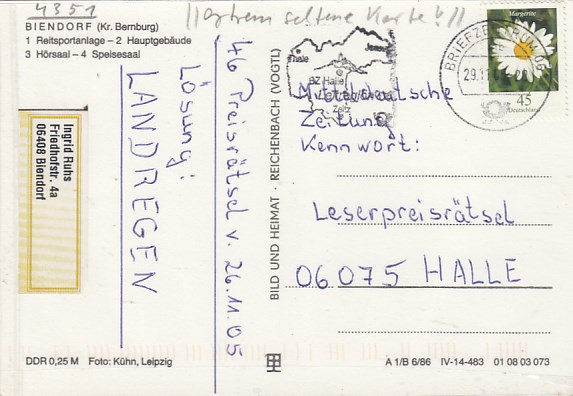 4351
//extrem seltene Karte!//
BIENDORF (Kr. Bernburg)
1 Reitsportanlage – 2 Hauptgebäude
3 Hörsaal – 4 Speisesaal
Ingrid Ruhs
Friedhofstr. 4a
06408 Biendorf
Lösung:
LANDREGEN
Preisrätsel v. 26.11.05
BILD UND HEIMAT · REICHENBACH (VOGTL)
Thale
BZ Halle
Zeitz
BRIEFZENTRUM
29.11.05
Margerite
45
Deutschland
Mitteldeutsche
Zeitung
Kennwort:
Leserpreisrätsel
06075 HALLE
DDR 0,25 M Foto: Kühn, Leipzig
A 1/B 6/86 IV-14-483 01 08 03 073